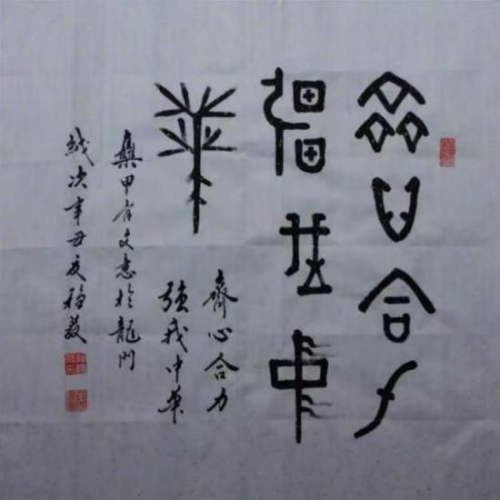 齊心合力
強我中
華
齊心合力
強我中華
甲骨文志於龍門
歲次辛丑夏